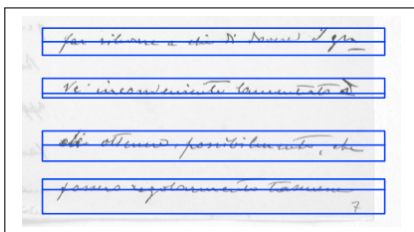 far rilevare a chi di dovere I gra
vi inconvenienti lamentati
di ottenere, possibilmente, che
fossero regolarmente
7